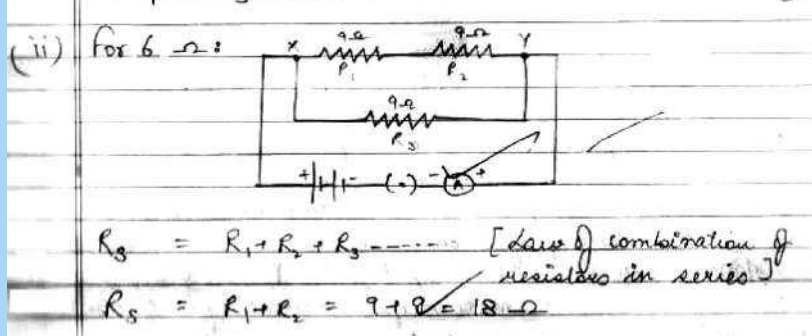 (ii) For 6 Ω :
X 9Ω 9Ω Y
R₁ R₂
9Ω
R₃
+ - (.) - A +
Rs = R₁ + R₂ + R₃ ------ [Law of combination of
resistors in series]
Rs = R₁ + R₂ = 9 + 9 = 18 Ω